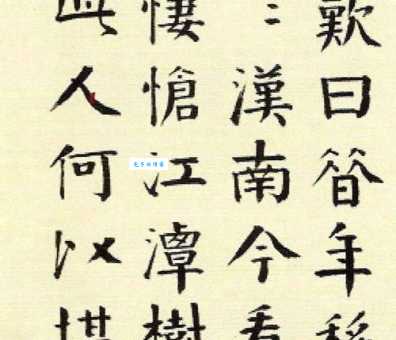 歎曰昔年移
〻漢南今看
悽愴江潭樹
此人何以堪